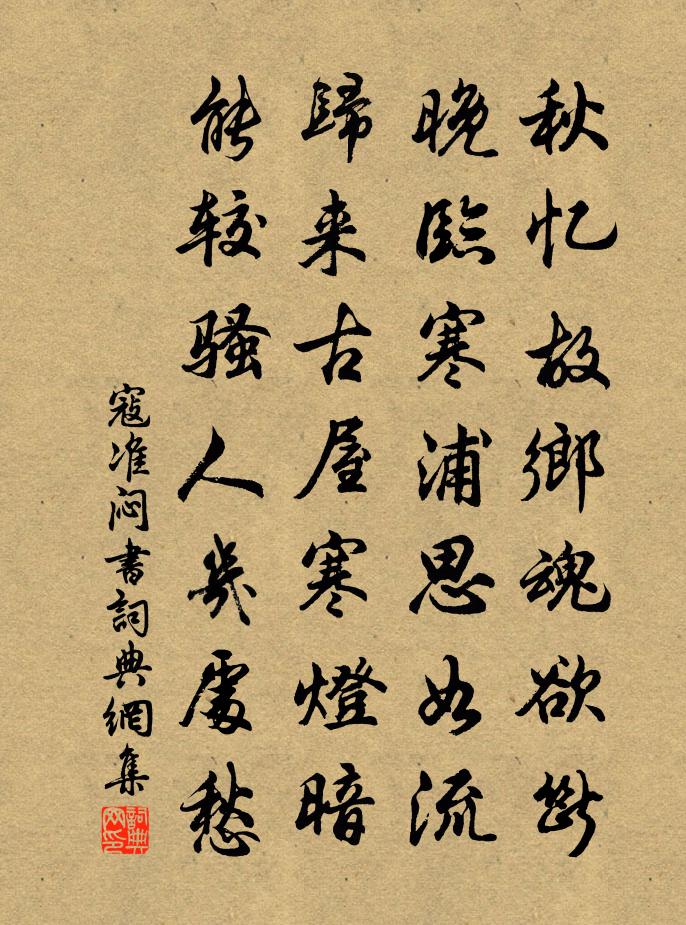 秋忆故鄉魂欲斷
晚臨寒浦思如流
歸来古屋寒燈暗
能较騷人幾處愁
寇准闷書詞典網集
詞典网印